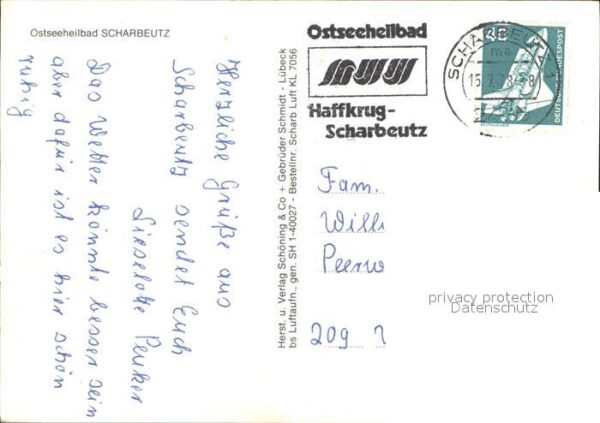 Ostseeheilbad SCHARBEUTZ
Herzliche Grüße aus
Scharbeutz sendet Euch
Lieselotte Penker
Das Wetter könnte besser sein
aber dafür ist es hier schön
ruhig
Herst. u. Verlag Schöning & Co + Gebrüder Schmidt - Lübeck
bs Luftaufn., gen. SH 1-40027 - Bestellnr. Scharb Luft KL 7056
Ostseeheilbad
Haffkrug-
Scharbeutz
SCHARBEUTZ 1
ma
15.7.78-8
DEUTSCHE BUNDESPOST
Fam.
Willi
209
privacy protection
Datenschutz